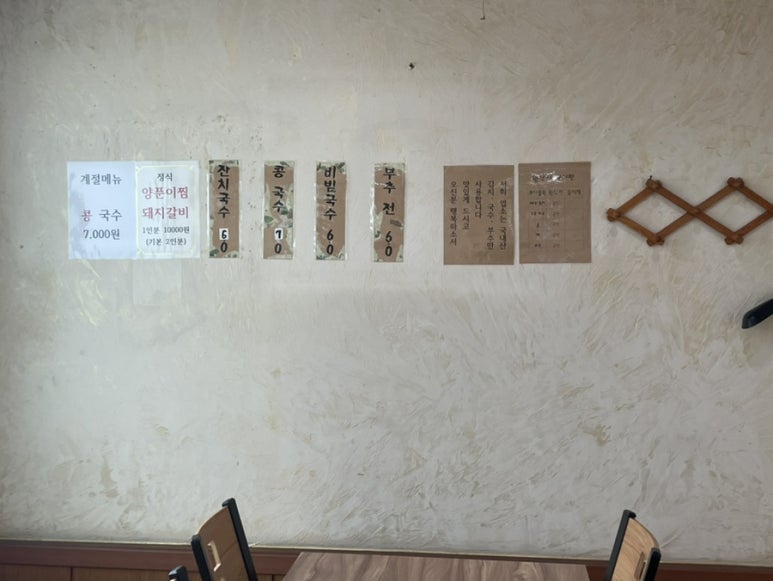 계절메뉴
콩 국수
7.000원
정식
양푼이찜
돼지갈비
1인분 10000원
(기본 2인분)
잔치국수 60
콩국수 70
비빔국수 60
부추전 60
저희 업소는 국내산
김치 국수·부추만
사용합니다
맛있게 드시고
오신분 행복하소서